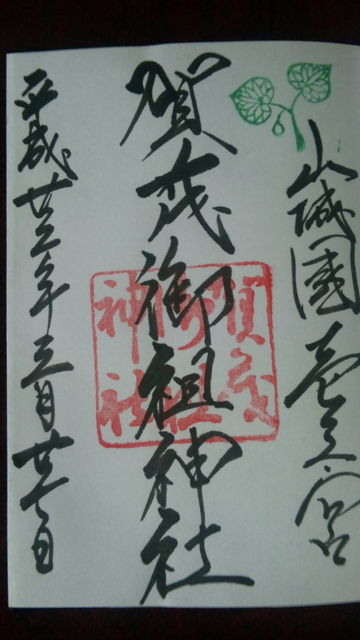 山城國壱之宮
賀茂御祖神社
平成廿三年三月廿七日
賀茂
御祖
神社